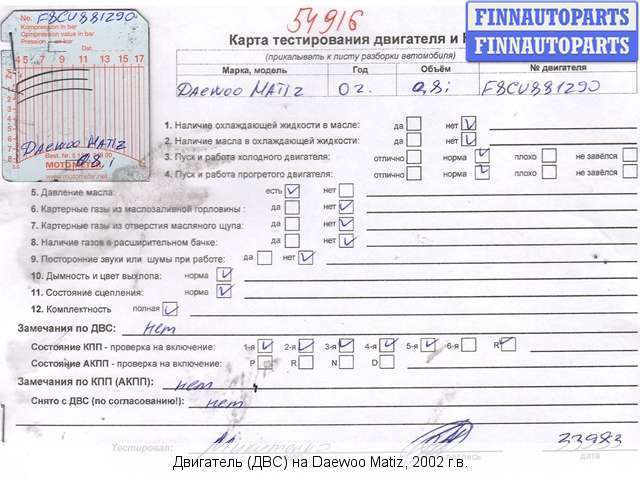 No. F8CU881290
Kompression in bar
Compression value in bar
Pression en bar
Dat.
4 5 6 7 8 9 11 13 15 17
DAEWOO MATIZ
0,8 i
MOTOMETER
www.motometer.net
54916
FINNAUTOPARTS
FINNAUTOPARTS
Карта тестирования двигателя и
(прикалывать к листу разборки автомобиля)
Марка, модель Год Объём № двигателя
DAEWOO MATIZ 02. 0,8i F8CU881290
1. Наличие охлаждающей жидкости в масле: да нет
2. Наличие масла в охлаждающей жидкости: да нет
3. Пуск и работа холодного двигателя: отлично норма плохо не завёлся
4. Пуск и работа прогретого двигателя: отлично норма плохо не завёлся
5. Давление масла: есть нет
6. Картерные газы из маслозаливной горловины : да нет
7. Картерные газы из отверстия масляного щупа: да нет
8. Наличие газов в расширительном бачке: да нет
9. Посторонние звуки или шумы при работе: да нет
10. Дымность и цвет выхлопа: норма
11. Состояние сцепления: норма
12. Комплектность полная
Замечания по ДВС: нет
Состояние КПП - проверка на включение: 1-я 2-я 3-я 4-я 5-я 6-я R
Состояние АКПП - проверка на включение: P R N D
Замечания по КПП (АКПП): нет
Снято с ДВС (по согласованию!): нет
Тестировал: подпись дата
Двигатель (ДВС) на Daewoo Matiz, 2002 г.в.